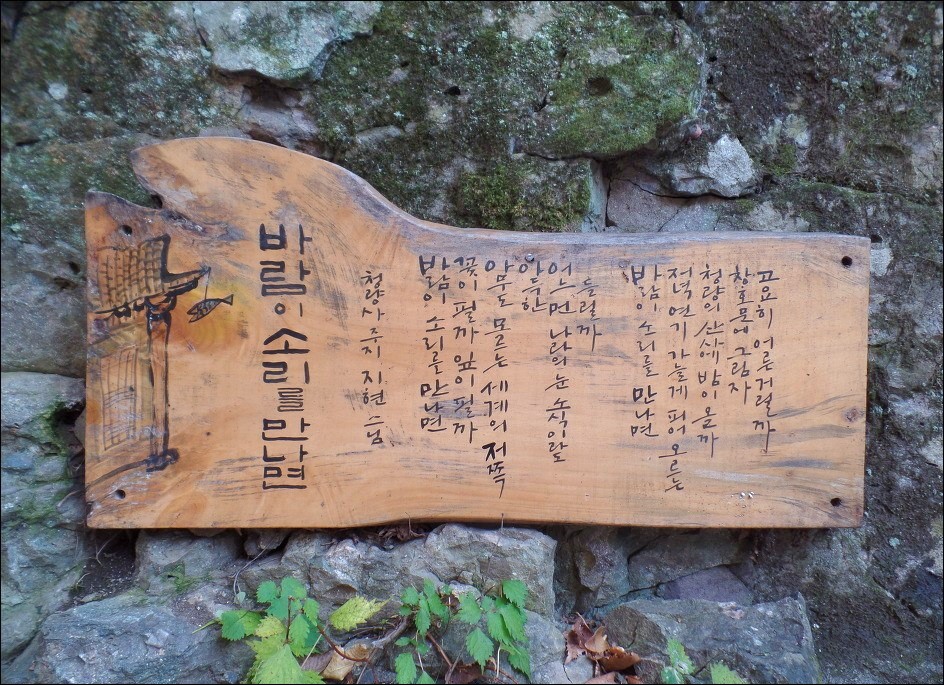 바람이 소리를 만나면
청량사 주지 지현 스님
바람이 소리를 만나면
꽃이 필까 잎이 필까
아무도 모르는 세계의 저쪽
아득한
어느 먼 나라의 눈 소식이라도
들릴까
바람이 소리를 만나면
저녁 연기 가늘게 피어 오르는
청량의 산사에 밤이 올까
창호문에 그림자
고요히 어른거릴까